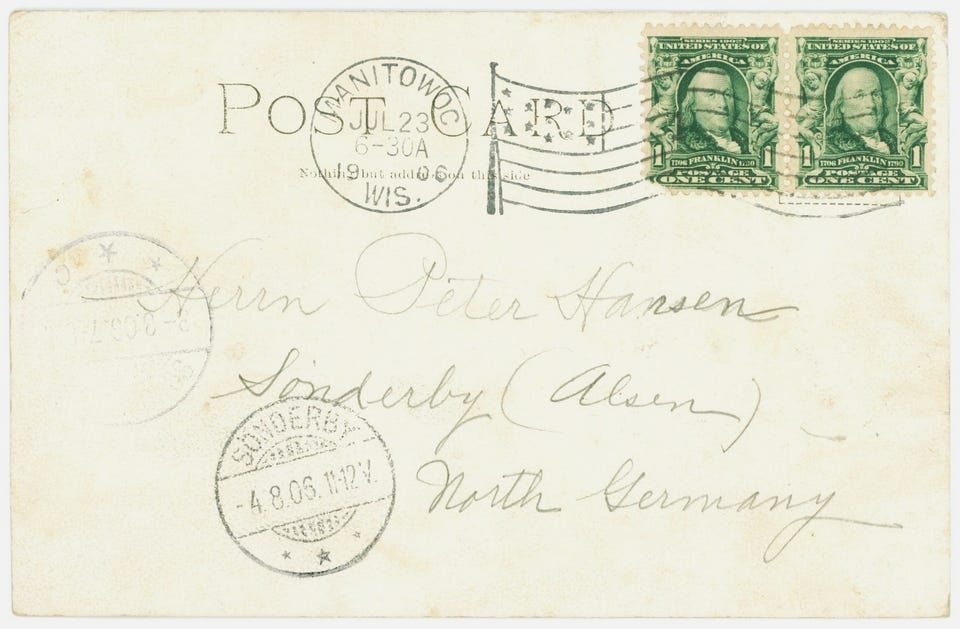 POST CARD
Nothing but address on this side
MANITOWOC
JUL 23
6-30A
1906
WIS.
SERIES 1902
UNITED STATES OF
AMERICA
1706 FRANKLIN 1790
1 1
POSTAGE
ONE CENT
SERIES 1902
UNITED STATES OF
AMERICA
1706 FRANKLIN 1790
1 1
POSTAGE
ONE CENT
Herrn Peter Hansen
Sonderby (Alsen)
North Germany
SÜNDERBY
-4.8.06.11-12V.